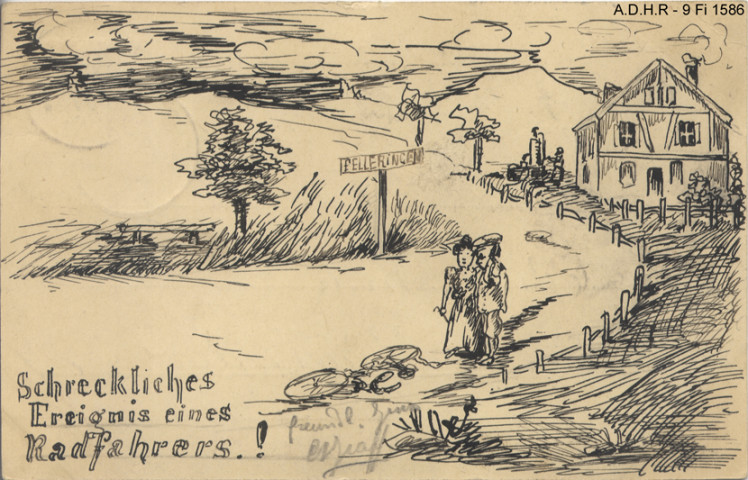 A.D.H.R - 9 Fi 1586
PELLERINGEN
Schreckliches
Ereignis eines
Radfahrers.!
freundl.